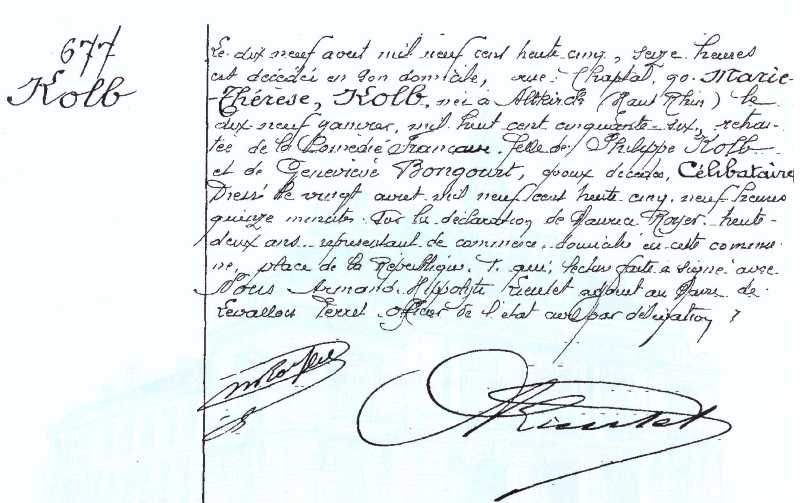 677
Kolb
Le dix neuf aout mil neuf cent trente cinq, seize heures
est décédée en son domicile, rue Chaptal, 90. Marie-
-Thérèse, Kolb, née à Altkirch (Haut Rhin) le
dix-neuf janvier, mil huit cent cinquante-six, retrai-
tée de la Comédie Française. fille de Philippe Kolb
et de Geneviève Bongourt, époux décédés, Célibataire
Dressé le vingt aout mil neuf cent trente cinq, neuf heures
quinze minutes. Sur la déclaration de Maurice Royer, trente-
deux ans. représentant de commerce, domicilié en cette commu-
ne, place de la République, 7. qui, lecture faite a signé avec
Nous Armand, Hippolyte adjoint au Maire de
Levallois Perret. officier de l'état civil par délégation